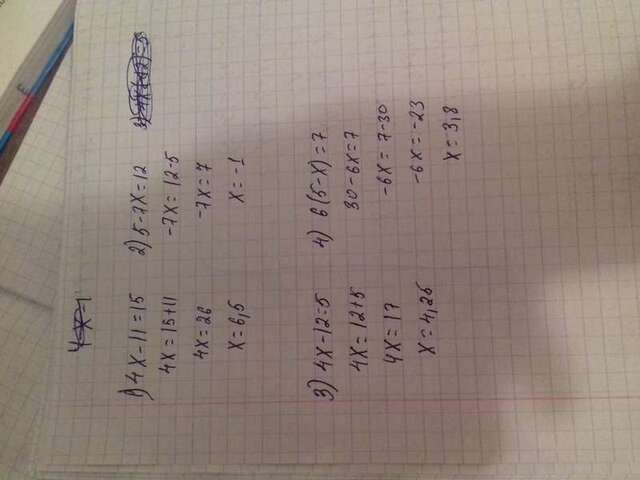 4-x=1
1) 4x-11=15
4x=15+11
4x=26
x=6,5
2) 5-7x=12
-7x=12-5
-7x=7
x=-1
3) 4x-12=5
4x=12+5
4x=17
x=4,25
4) 6(5-x)=7
30-6x=7
-6x=7-30
-6x=-23
x=3,8